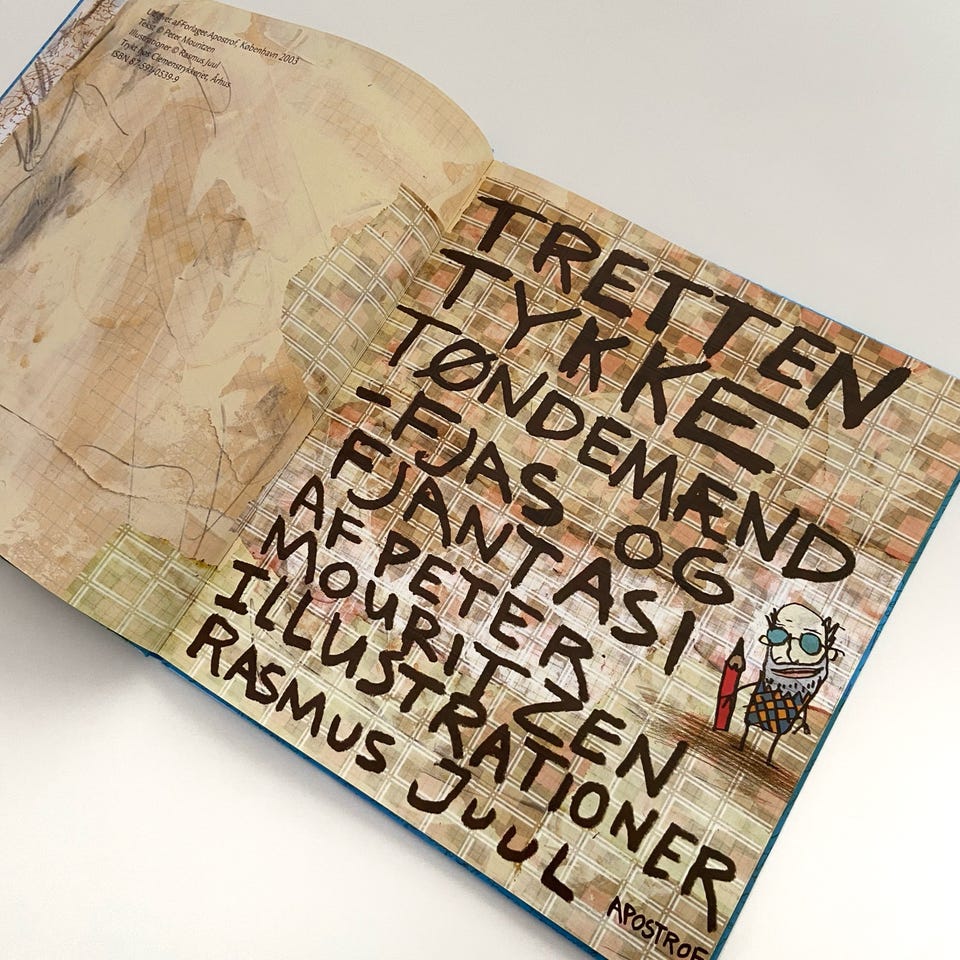 Udgivet af Forlaget Apostrof, København 2003
Tekst © Peter Mouritzen
Illustrationer © Rasmus Juul
Trykt hos Clemenstrykkeriet, Århus
ISBN 87-591-0539-9
TRETTEN
TYKKE
TØNDEMÆND
-FJAS OG
FJANTASI
AF PETER
MOURITZEN
ILLUSTRATIONER
RASMUS JUUL
APOSTROF